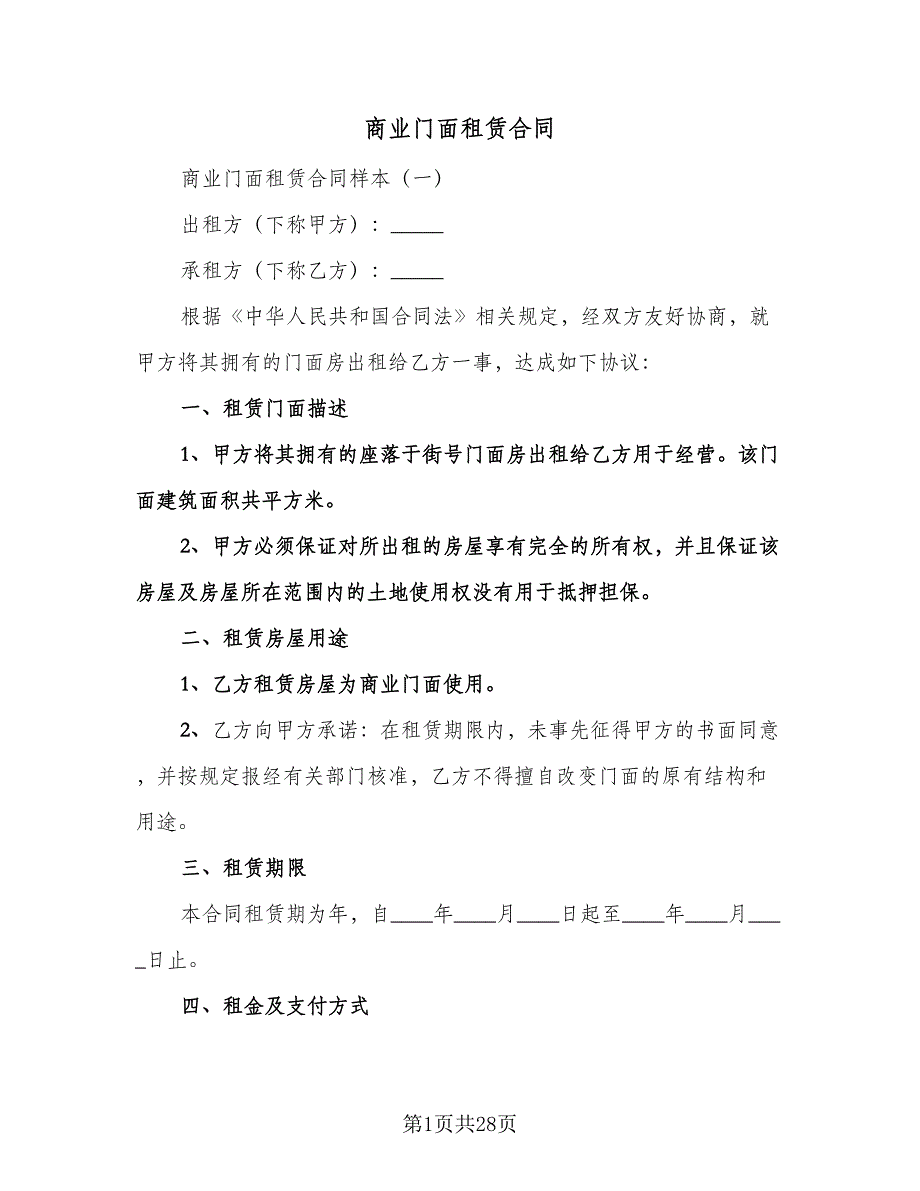 商业门面租赁合同
商业门面租赁合同样本（一）
出租方（下称甲方）：_____
承租方（下称乙方）：_____
根据《中华人民共和国合同法》相关规定，经双方友好协商，就
甲方将其拥有的门面房出租给乙方一事，达成如下协议：
一、租赁门面描述
1、甲方将其拥有的座落于街号门面房出租给乙方用于经营。该门
面建筑面积共平方米。
2、甲方必须保证对所出租的房屋享有完全的所有权，并且保证该
房屋及房屋所在范围内的土地使用权没有用于抵押担保。
二、租赁房屋用途
1、乙方租赁房屋为商业门面使用。
2、乙方向甲方承诺：在租赁期限内，未事先征得甲方的书面同意
，并按规定报经有关部门核准，乙方不得擅自改变门面的原有结构和
用途。
三、租赁期限
本合同租赁期为年，自____年____月____日起至____年____月___
_日止。
四、租金及支付方式
第1页共28页